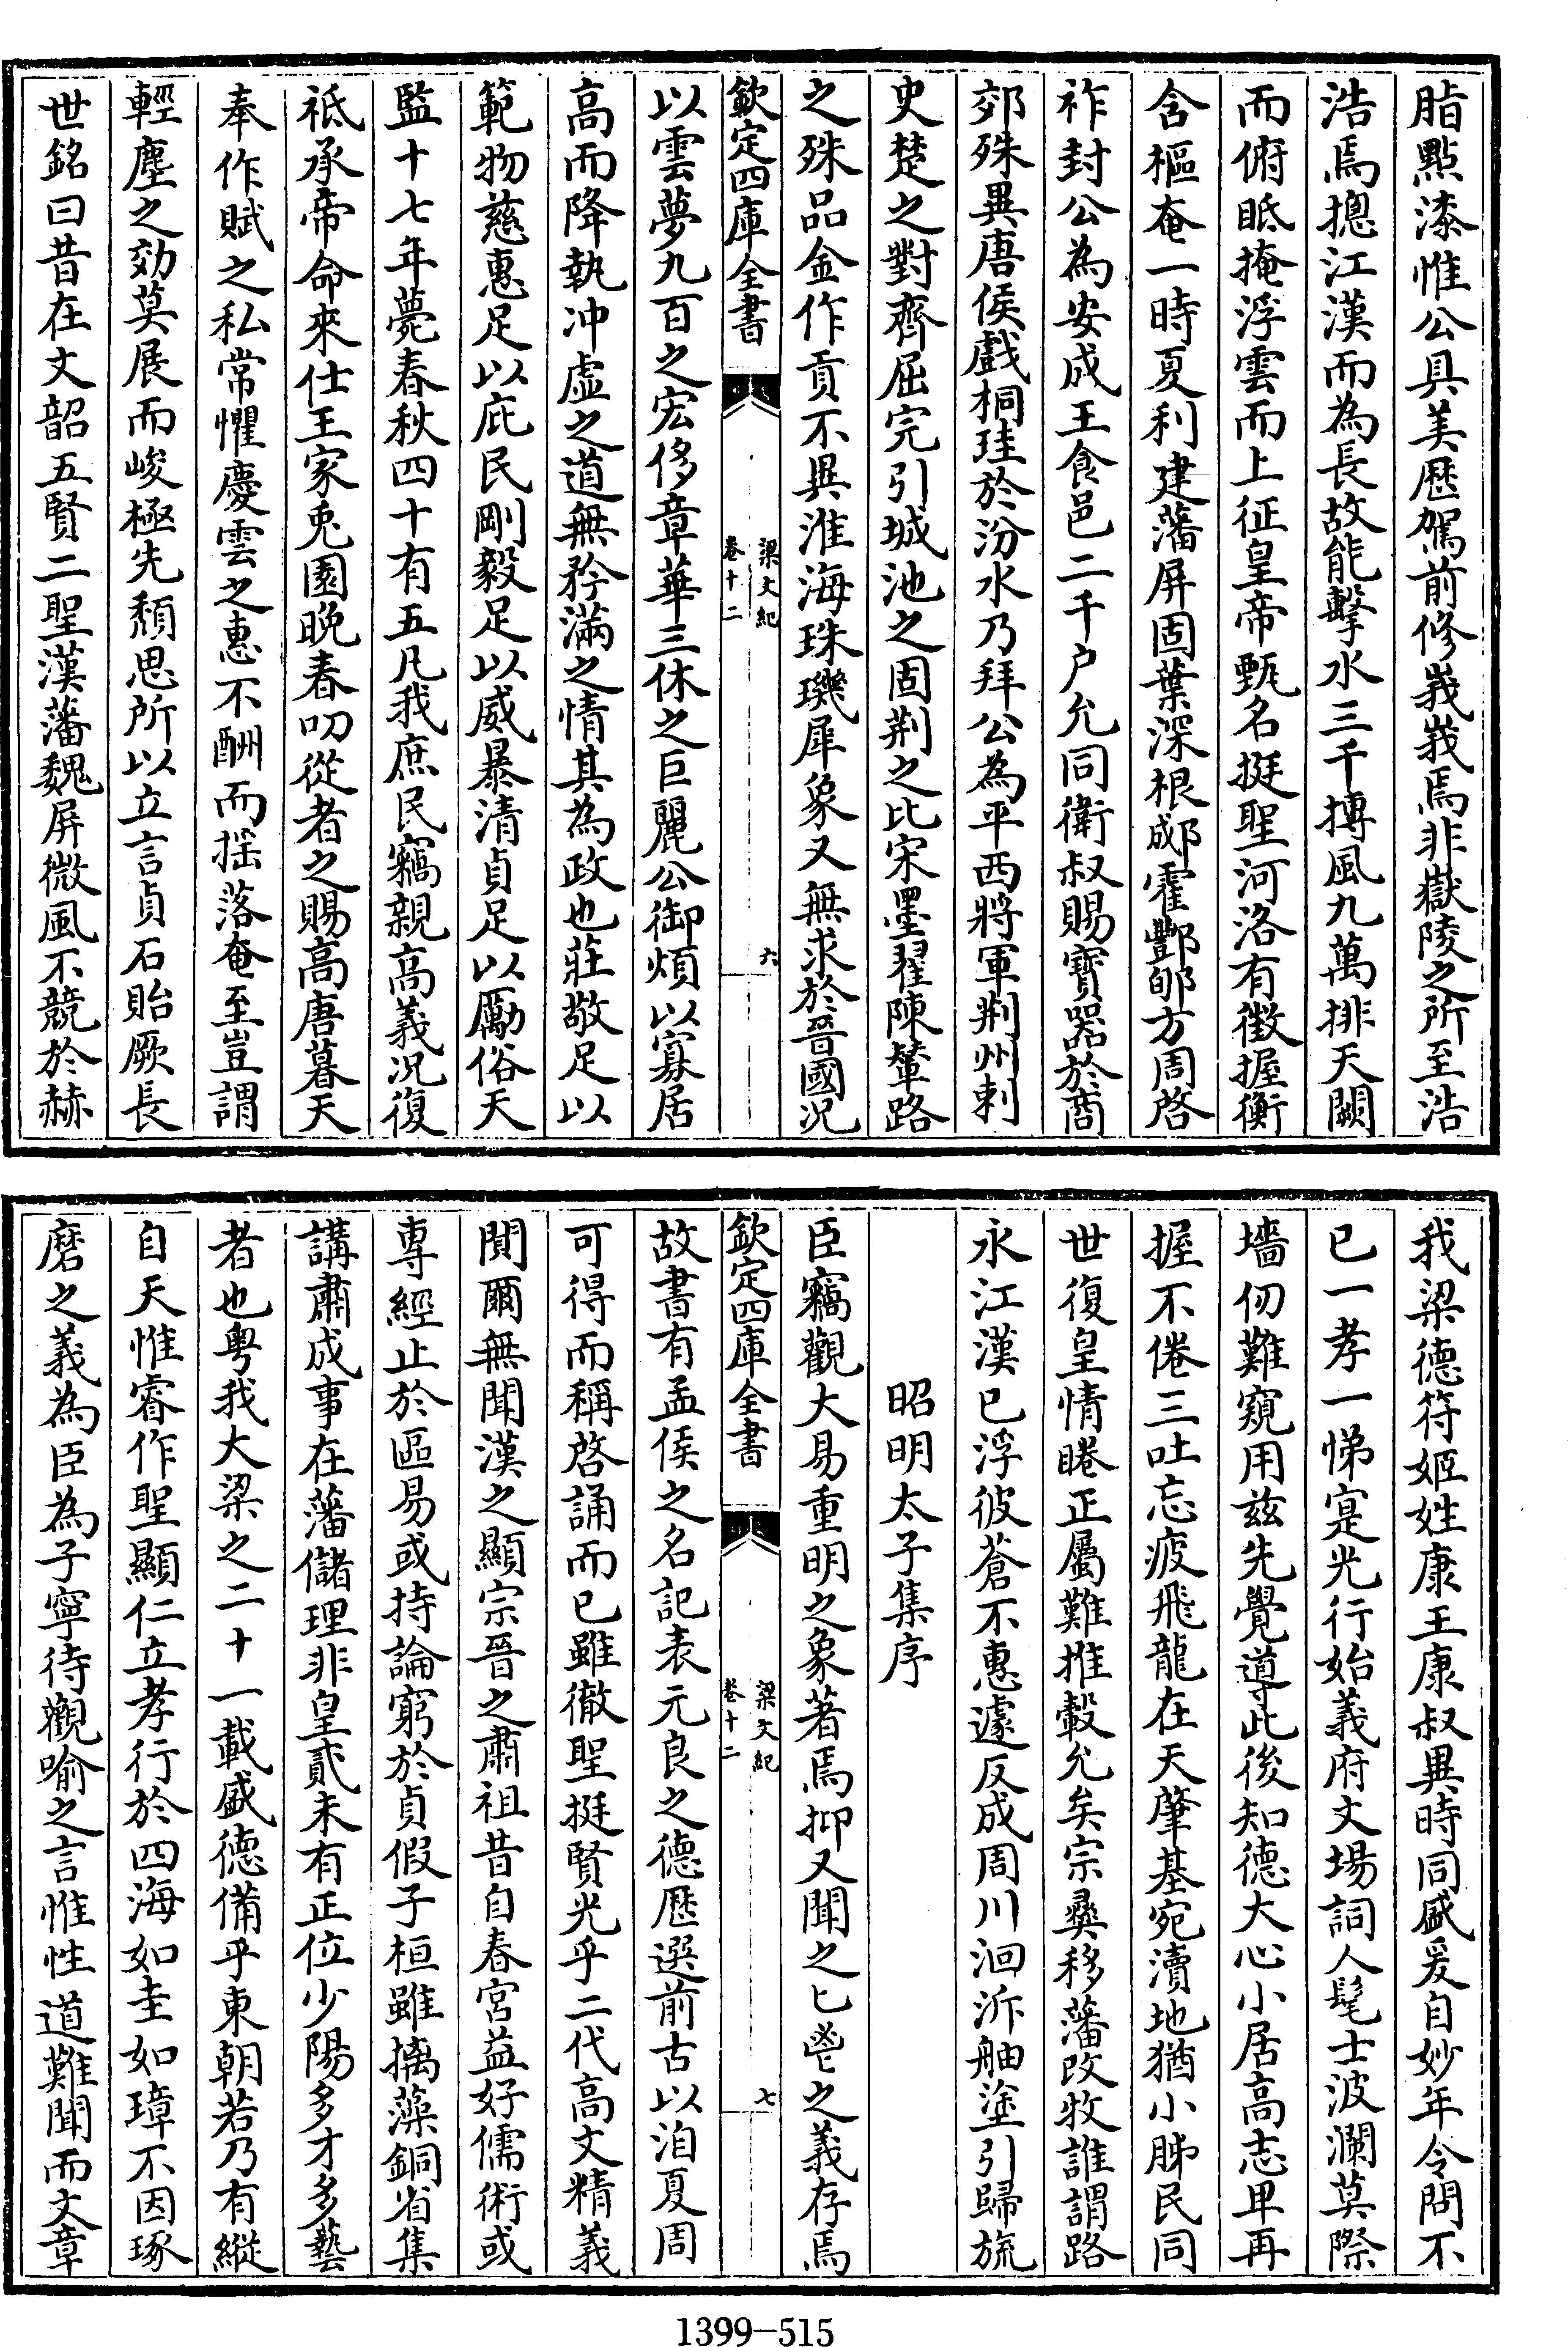 脂點漆惟公具美歷駕前修峩峩焉非嶽陵之所至浩
浩焉揔江漢而為長故能擊水三千摶風九萬排天闕
而俯眂掩浮雲而上征皇帝甄名挺聖河洛有徵握衡
含樞奄一時夏利建藩屏固葉深根郕霍酆郇方周啓
祚封公為安成王食邑二千户允同衛叔賜寶器於商
郊殊異唐侯戲桐珪於汾水乃拜公為平西將軍荆州剌
史楚之對齊屈完引城池之固荆之比宋墨翟陳輦路
之殊品金作貢不異淮海珠璣犀象又無求於晉國况
欽定四庫全書
梁文紀
卷十二
六
以雲夢九百之宏侈章華三休之巨麗公御煩以寡居
高而降執冲虛之道無矜滿之情其為政也莊敬足以
範物慈惠足以庇民剛毅足以威暴清貞足以厲俗天
監十七年薨春秋四十有五凡我庶民竊親高義况復
祗承帝命來仕王家兎園晚春叨從者之賜高唐暮天
奉作賦之私常懼慶雲之惠不酬而揺落奄至豈謂
輕塵之効莫展而峻極先頽思所以立言貞石貽厥長
世銘曰昔在文韶五賢二聖漢藩魏屏微風不競於赫
我梁德符姬姓康王康叔異時同盛爰自妙年令問不
已一孝一悌寔光行始義府文場詞人髦士波瀾莫際
墻仞難窺用兹先覺導此後知德大心小居高志卑再
握不倦三吐忘疲飛龍在天肇基宛瀆地猶小胏民同
世復皇情睠正屬難推轂允矣宗彞移藩改牧誰謂路
永江漢已浮彼蒼不惠遽反成周川洄泝舳塗引歸旒
昭明太子集序
臣竊觀大易重明之象著焉抑又聞之匕鬯之義存焉
欽定四庫全書
梁文紀
卷十二
七
故書有孟侯之名記表元良之德歷選前古以洎夏周
可得而稱啓誦而已雖徹聖挺賢光乎二代高文精義
閴爾無聞漢之顯宗晉之肅祖昔自春宫益好儒術或
専經止於區易或持論窮於貞假子桓雖摛藻銅省集
講肅成事在藩儲理非皇貳未有正位少陽多才多藝
者也粤我大梁之二十一載盛德備乎東朝若乃有縱
自天惟睿作聖顯仁立孝行於四海如圭如璋不因琢
磨之義為臣為子寧待觀喻之言惟性道難聞而文章
1399-515